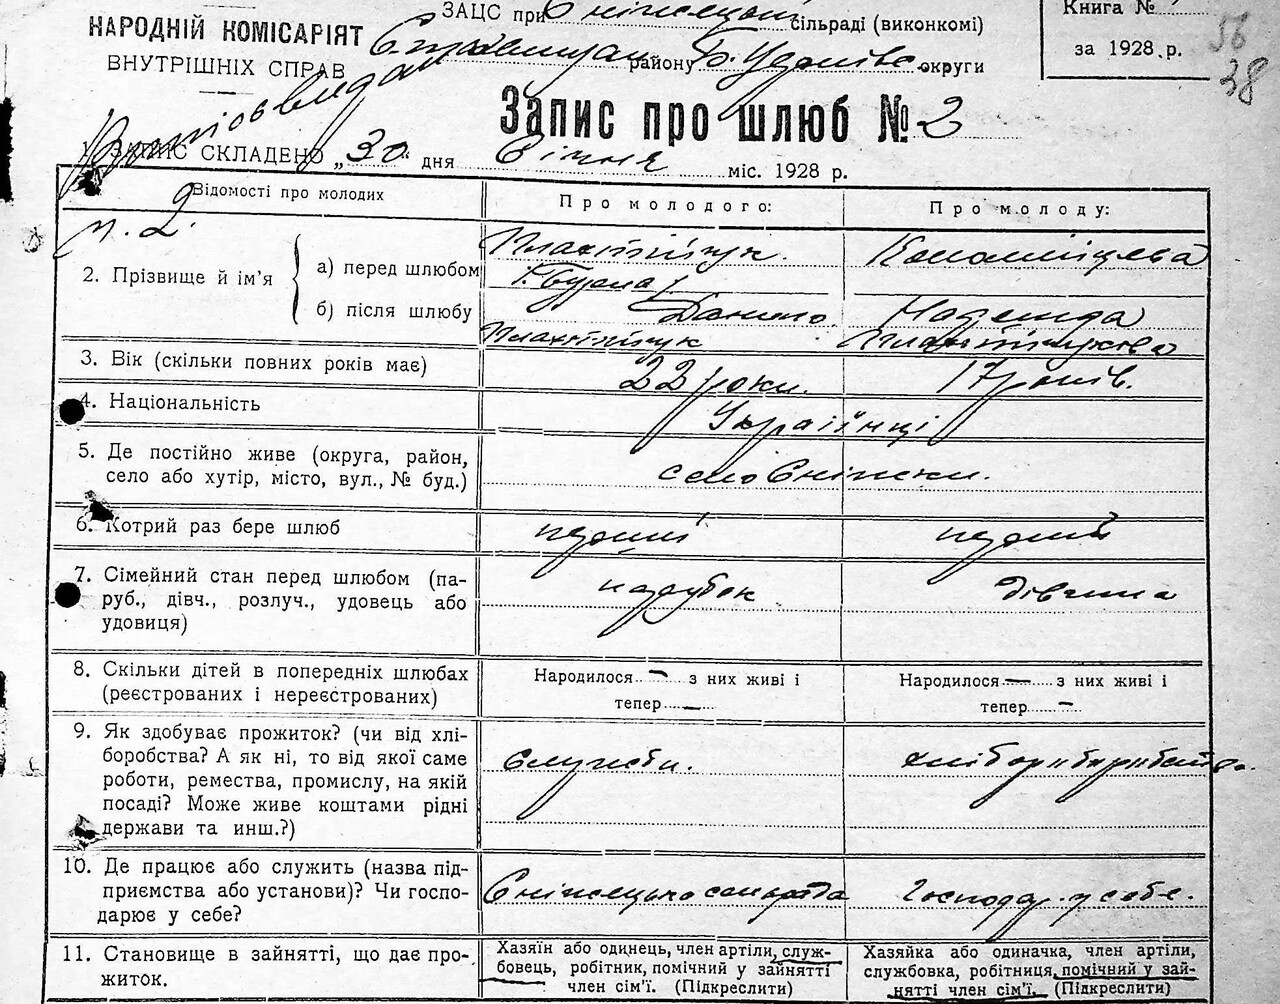 НАРОДНІЙ КОМІСАРІЯТ
ВНУТРІШНІХ СПРАВ
ЗАЦС при Сніжецькій сільраді (виконкомі)
району Б. Церківс. округи
Книга №
за 1928 р.
56
38
Запис про шлюб № 2
1. ЗАПИС СКЛАДЕНО „30" дня Січня міс. 1928 р.
Відомості про молодих
Про молодого:
Про молоду:
п. 2
2. Прізвище й ім'я
а) перед шлюбом
б) після шлюбу
Данило
Надежда
3. Вік (скільки повних років має)
22 роки.
17 років.
4. Національність
Українці
5. Де постійно живе (округа, район,
село або хутір, місто, вул., № буд.)
село Сніжки.
6. Котрий раз бере шлюб
перший
перший
7. Сімейний стан перед шлюбом (па-
руб., дівч., розлуч., удовець або
удовиця)
парубок
дівчина
8. Скільки дітей в попередніх шлюбах
(реєстрованих і нереєстрованих)
Народилося — з них живі і
тепер —
Народилося — з них живі і
тепер —
9. Як здобуває прожиток? (чи від хлі-
боробства? А як ні, то від якої саме
роботи, ремества, промислу, на якій
посаді? Може живе коштами рідні
держави та инш.?)
служби.
10. Де працює або служить (назва під-
приємства або установи)? Чи госпо-
дарює у себе?
Сніжецька сільрада
Господар. у себе.
11. Становище в зайнятті, що дає про-
житок.
Хазяїн або одинець, член артіли, служ-
бовець, робітник, помічний у зайнятті
член сім'ї. (Підкреслити)
Хазяйка або одиначка, член артіли,
службовка, робітниця, помічний у зай-
нятті член сім'ї. (Підкреслити)